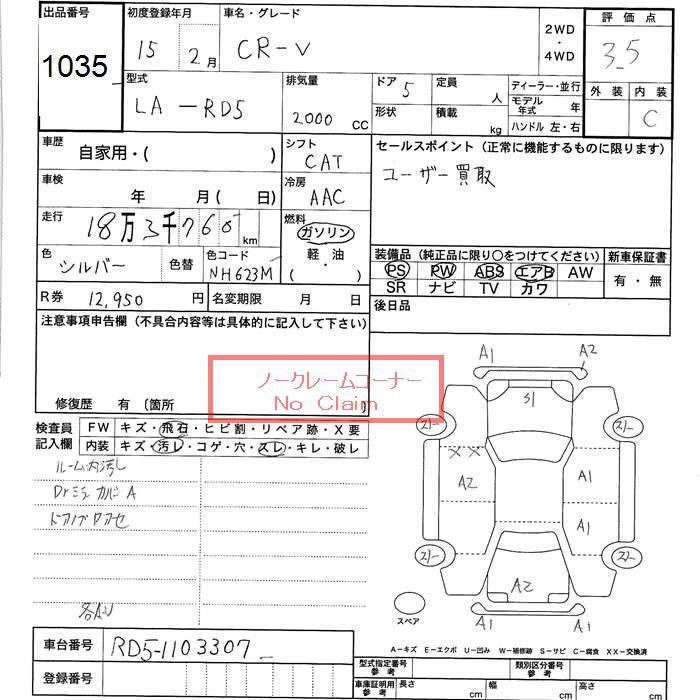 出品番号 初度登録年月 車名・グレード 2WD 評価点
1035 15 2月 CR-V ・ 3.5
4WD
型式 排気量 ドア 5 定員 人 ディーラー・並行 外装 内装
LA-RD5 2000 CC 形状 積載 kg モデル年式 年 C
ハンドル 左・右
車歴 自家用・( ) シフト CAT セールスポイント (正常に機能するものに限ります)
車検 年 月( 日) 冷房 AAC ユーザー買取
走行 18万3千760 km 燃料 ガソリン
軽・油
( ・ )
色 シルバー 色替 色コード NH623M
装備品 (純正品に限り○をつけてください) 新車保証書
PS PW ABS エアB AW 有・無
SR ナビ TV カワ
R券 12,950 円 名変期限 月 日 後日品
注意事項申告欄 (不具合内容等は具体的に記入して下さい)
ノークレームコーナー
No Claim
修復歴 有 〔箇所
検査員 FW キズ・飛石・ヒビ割・リペア跡・X要
記入欄 内装 キズ・汚レ・コゲ・穴・スレ・キレ・破レ
ルーム内汚し
A1 A2
S1
XX
A2 A1
A1
A2
A1 A1
スペア
A-キズ E-エクボ U-凹み W-補修跡 S-サビ C-腐食 XX-交換済
車台番号 RD5-1103307
登録番号
型式指定番号 参考 類別区分番号 参考
車庫証明用 参考 長さ cm 幅 cm 高さ cm